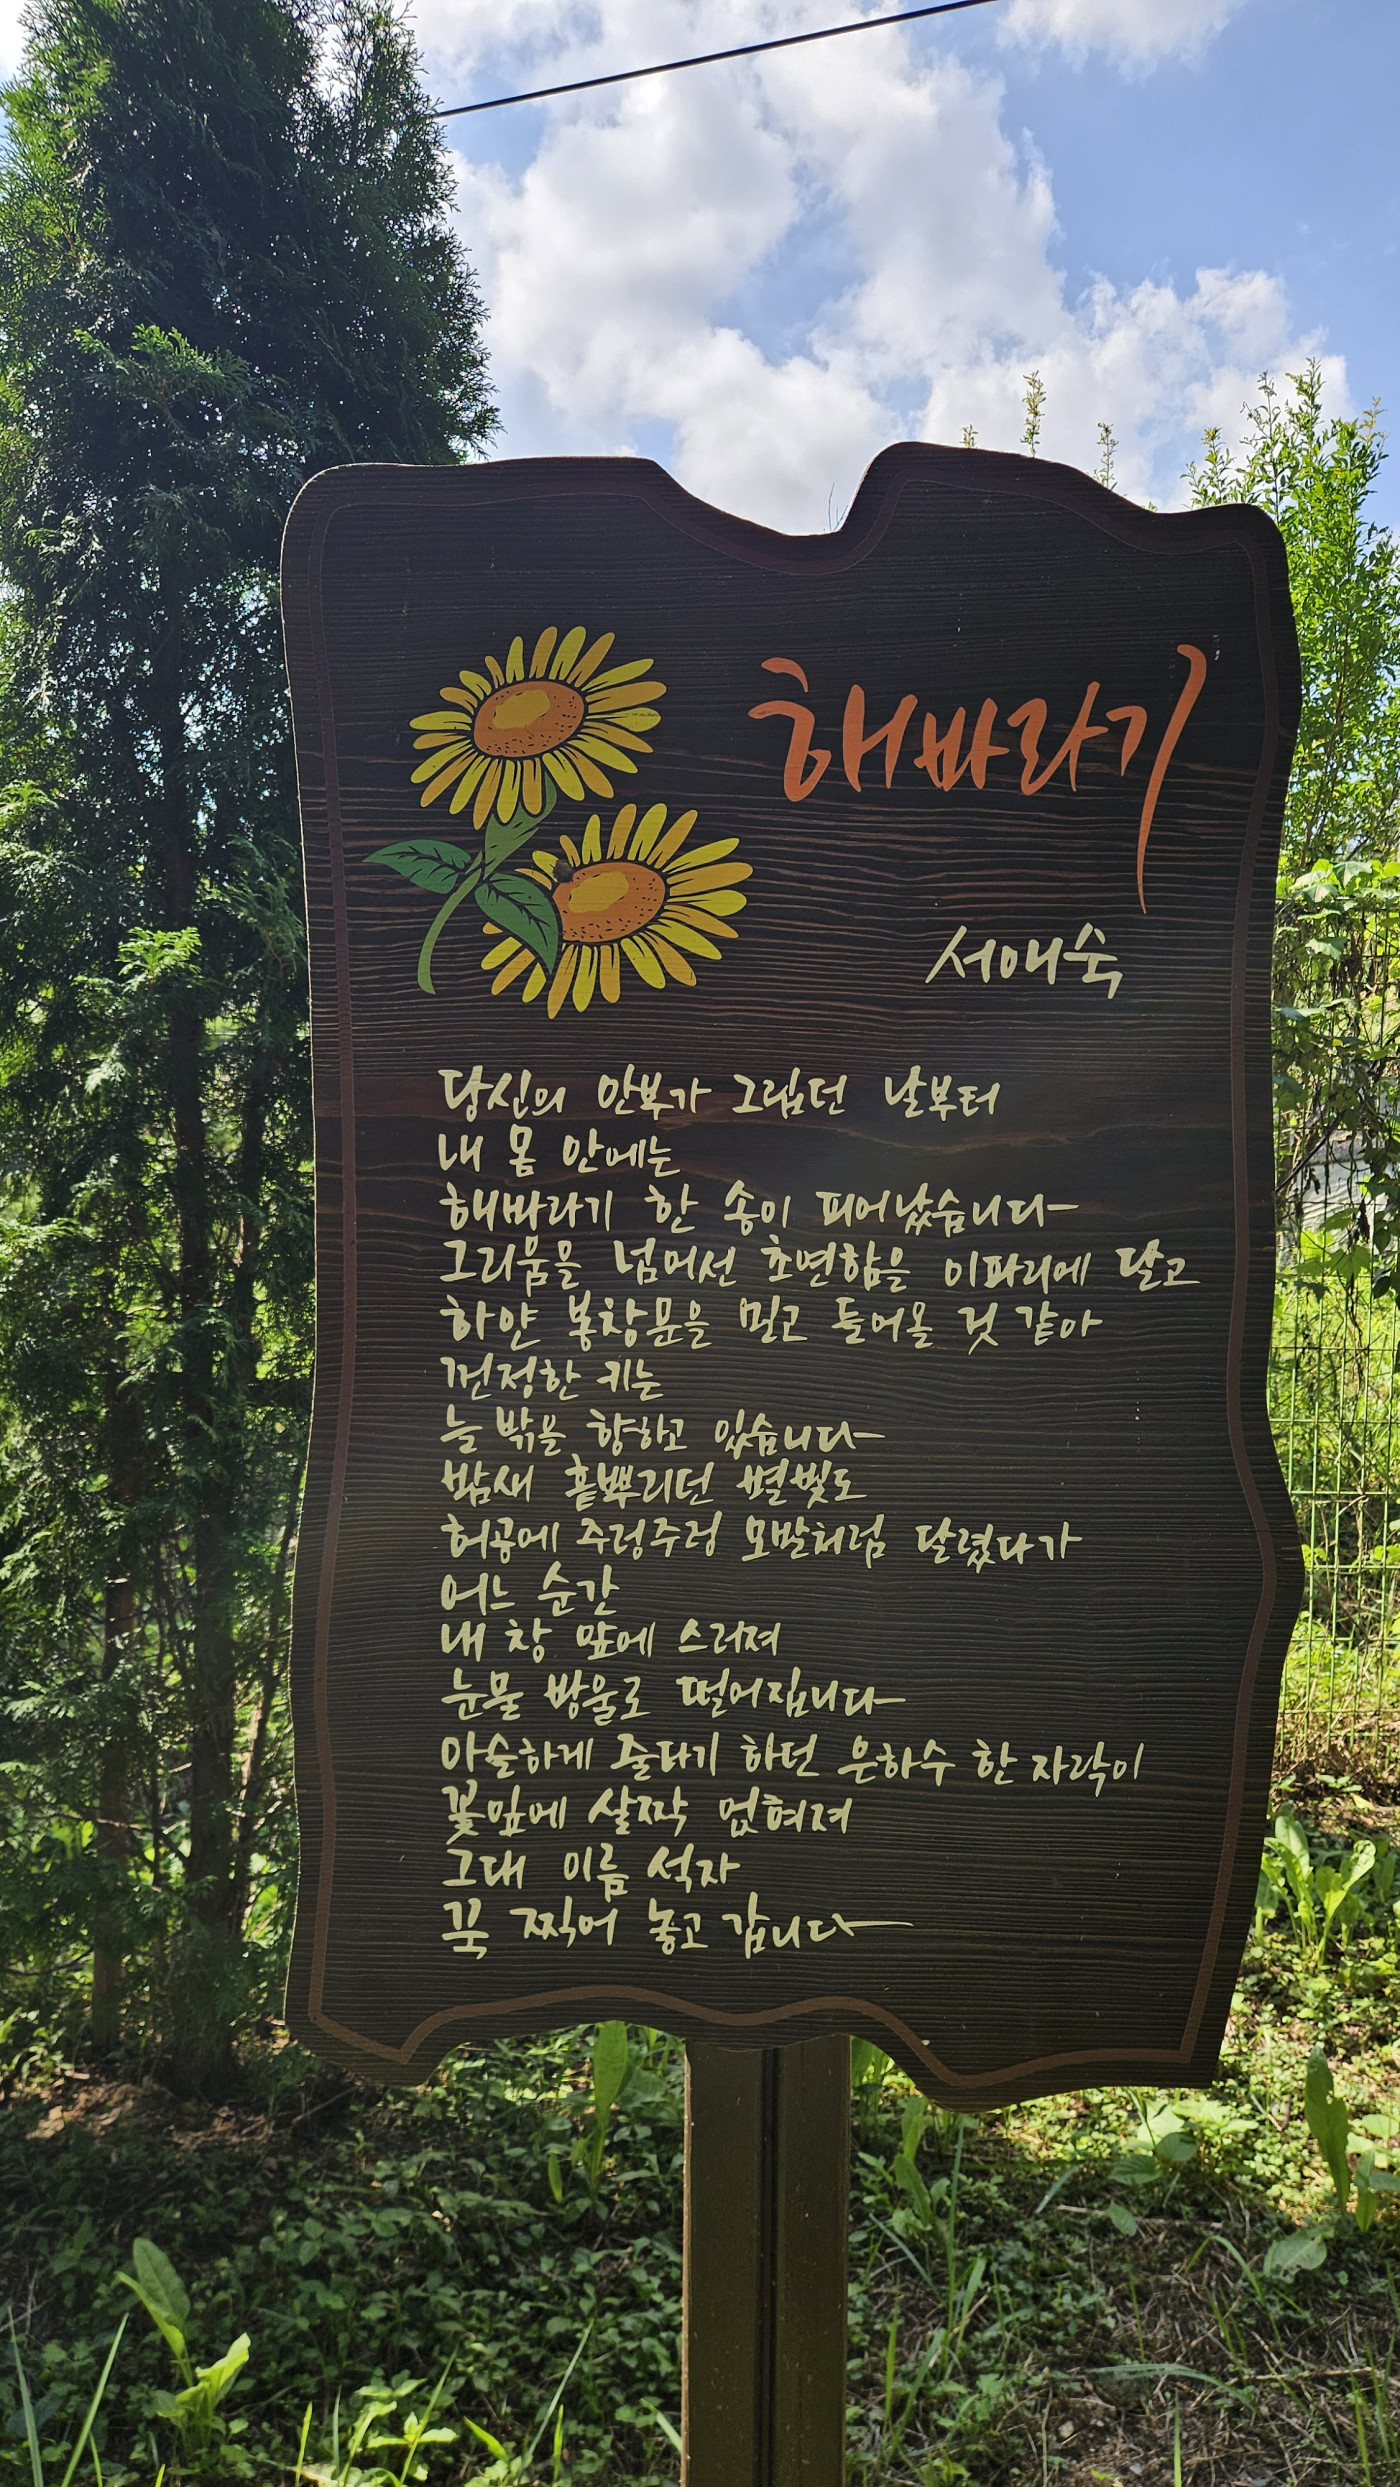 해바라기
서애숙
당신의 안부가 그립던 날부터
내 몸 안에는
해바라기 한 송이 피어났습니다
그리움을 넘어선 초연함을 이파리에 달고
하얀 봉창문을 밀고 들어올 것 같아
껀정한 키는
늘 밖을 향하고 있습니다
밤새 흩뿌리던 별빛도
허공에 주렁주렁 모발처럼 달렸다가
어느 순간
내 창 앞에 스러져
눈물 방울로 떨어집니다
아슬하게 줄타기 하던 은하수 한 자락이
꽃잎에 살짝 얹혀져
그대 이름 석자
꾹 찍어 놓고 갑니다